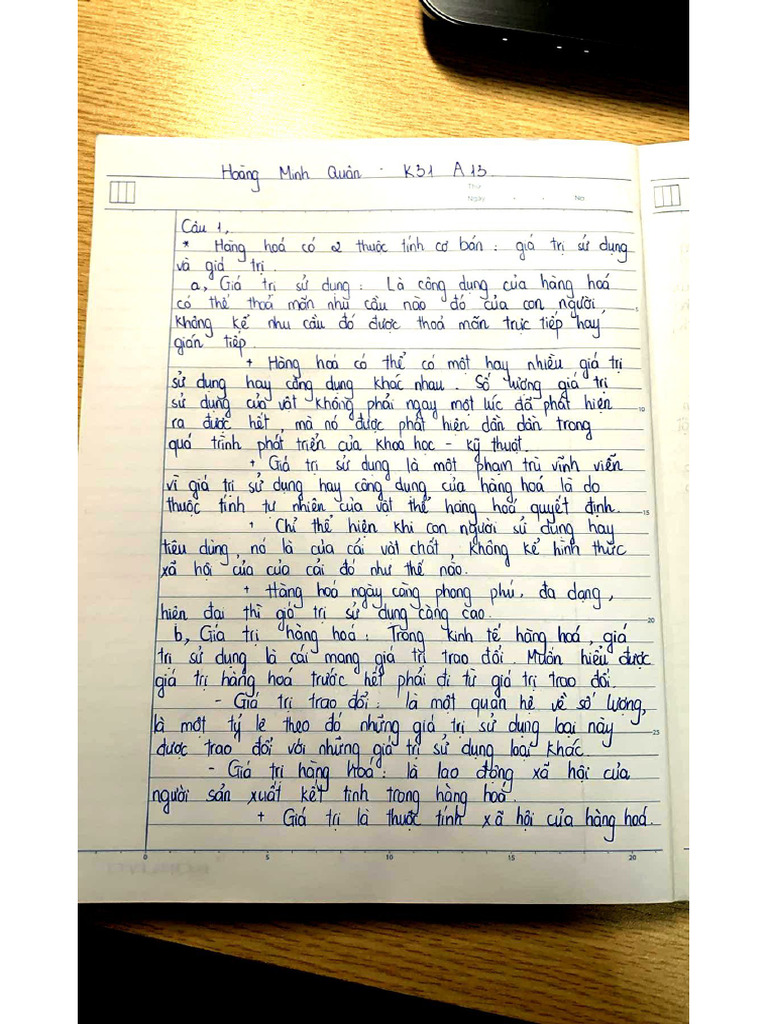 Hoàng Minh Quân - K31 A13
Thứ
Ngày . . No
Câu 1,
* Hàng hoá có 2 thuộc tính cơ bản : giá trị sử dụng
và giá trị.
a, Giá trị sử dụng : Là công dụng của hàng hoá
có thể thoả mãn nhu cầu nào đó của con người,
không kể nhu cầu đó được thoả mãn trực tiếp hay
gián tiếp.
+ Hàng hoá có thể có một hay nhiều giá trị
sử dụng hay công dụng khác nhau. Số lượng giá trị
sử dụng của vật không phải ngay một lúc đã phát hiện
ra được hết, mà nó được phát hiện dần dần trong
quá trình phát triển của khoa học - kỹ thuật.
+ Giá trị sử dụng là một phạm trù vĩnh viễn
vì giá trị sử dụng hay công dụng của hàng hoá là do
thuộc tính tự nhiên của vật thể hàng hoá quyết định.
+ Chỉ thể hiện khi con người sử dụng hay
tiêu dùng, nó là của cải vật chất, không kể hình thức
xã hội của của cải đó như thế nào.
+ Hàng hoá ngày càng phong phú, đa dạng,
hiện đại thì giá trị sử dụng càng cao.
b, Giá trị hàng hoá : Trong kinh tế hàng hoá, giá
trị sử dụng là cái mang giá trị trao đổi. Muốn hiểu được
giá trị hàng hoá trước hết phải đi từ giá trị trao đổi.
- Giá trị trao đổi : là một quan hệ về số lượng,
là một tỷ lệ theo đó những giá trị sử dụng loại này
được trao đổi với những giá trị sử dụng loại khác.
- Giá trị hàng hoá : là lao động xã hội của
người sản xuất kết tinh trong hàng hoá.
+ Giá trị là thuộc tính xã hội của hàng hoá.
5
10
15
20
25
0 5 10 15 20